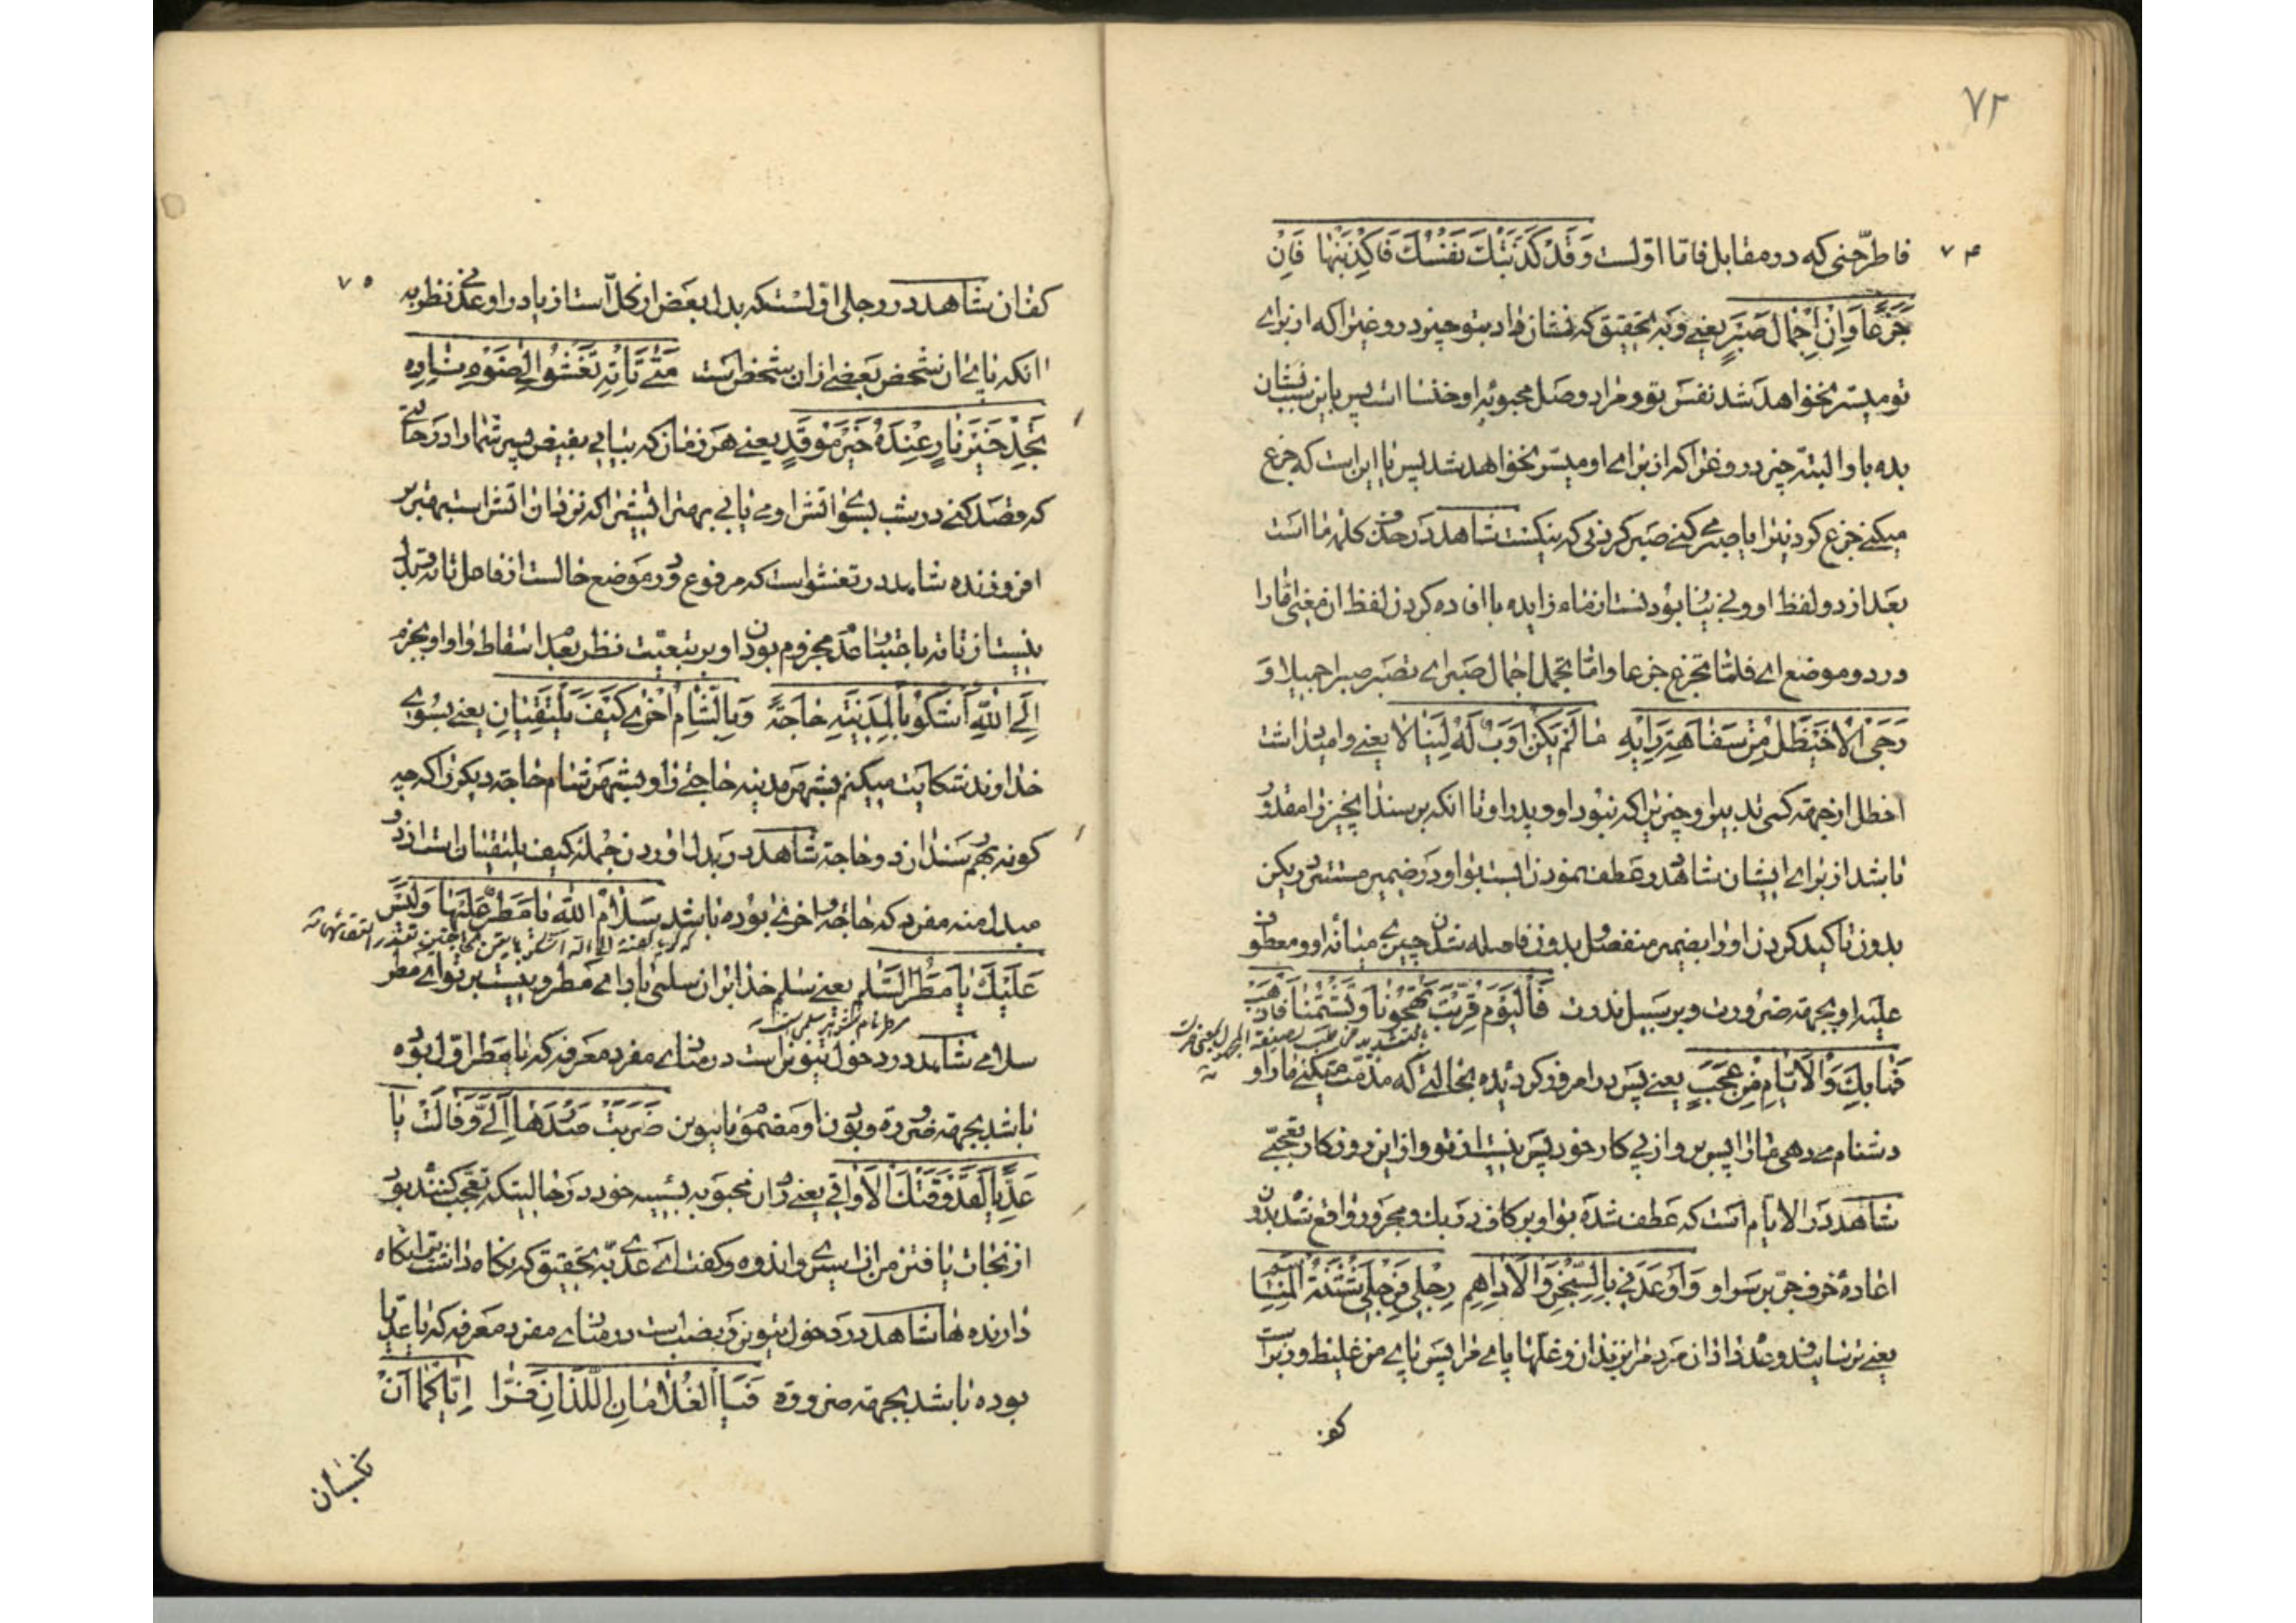 ۷۲
۷۴
فاطرحنی که در مقابل فاما اولست وَقَدْ كَذَبَتْكَ نَفْسُكَ فَاكْذِبَنْهَا فَاِنْ
جَزَعًا وَاِنْ اِجْمَالَ صَبْرٍ یعنی و به تحقیق که نشان داد بتو چیز دروغیرا که از برای
تو میسر نخواهد شد نفس تو و مراد وصل محبوبه او خنسا است پس باین سبب نشان
بده باو البته چیز دروغیرا که از برای او میسر نخواهد شد پس یا این است که جزع
میکنی جزع کردنیرا یا صبر می کنی صبر کردنی که نیکست شاهد در حذف کلمه ما است
بعد از دو لفظ او و نبودنست از ماء زایده با افاده کردن لفظ ان معنی امّا را
در دو موضع ای فامّا تجزع جزعا وامّا تجمل اجمال صبر ای تصبر صبرا جمیلا وَ
رَجَى الْاُخَيْطَلُ مِنْ سَفَاهَةِ رَأْيِهِ مَا لَمْ يَكُنْ وَاَبٌ لَهُ لِيَنَالَا یعنی و امید داشت
اخطل از جهة کمی تدبیر او چیزیرا که نبود او و پدر او تا انکه برسند انچیز را مقدور
باشد از برای ایشان شاهد در عطف نمودن ابست بواو در ضمیر مستتر در یکن
بدون تاکید کردن او را بضمیر منفصل و بدون فاصله شدن چیزی میانه او و معطوف
علیه او بجهة ضرورت و بر سبیل ندرت فَالْيَوْمَ قَرَّبْتَ تَهْجُونَا وَتَشْتِمُنَا فَاذْهَبْ
فَمَا بِكَ وَالْاَيَّامِ مِنْ عَجَبٍ یعنی پس در امروز گردیده بحالتی که مذمت میکنی ما را و
دشنام می دهی ما را پس برو از پی کار خود پس نیست از تو و از این روزکار تعجبی
شاهد در الایام است که عطف شده بواو بر کاف در بك و مجرور واقع شده بدون
اعادهٔ حرف جر بر سر او وَاَوْعَدَنِي بِالسِّجْنِ وَالْاَدَاهِمِ رِجْلِي فَرِجْلِي شَثْنَةُ الْمَنَاسِمِ
یعنی ترسانید و وعده داد ان مرد مرا بزندان و غلها پای مرا پس پای من غلیظ و زبر است
کف
۷۵
کفان شاهد در رجلی اولست که بدل بعض از کل است از یاء در اوعدنی نظر به
انکه پای ان شخص بعضی از ان شخص است مَتَى تَأْتِهِ تَعْشُو اِلَى ضَوْءِ نَارِهِ
تَجِدْ خَيْرَ نَارٍ عِنْدَهَا خَيْرُ مَوْقِدٍ یعنی هر زمان که بیایی بغیض پسر شماس را در حالتی
که قصد کنی در شب بسوی اتش او می یابی بهتر اتشیرا که نزد ان اتش است بهتر بر
افروزنده شاهد در تعشو است که مرفوع و در موضع حالست از فاعل تاته و بدل
نیست از تاته باعتبار عدم مجزوم بودن او بر تبعیت نظر بعدم اسقاط واو او بجزم
اِلَى اللّٰهِ اَشْكُو بِالْمَدِينَةِ حَاجَةً وَبِالشَّامِ اُخْرَى كَيْفَ يَلْتَقِيَانِ یعنی بسوی
خداوند شکایت میکنم بشهر مدینه حاجتی را و بشهر شام حاجة دیکر را که چه
کونه بهم رسند ان دو حاجة شاهد در بدل اوردن جمله کیف یلتقیان است از دو
مبدل منه مفرد که حاجة و اخری بوده باشد سَلَامُ اللّٰهِ يَا مَطَرٌ عَلَيْهَا وَلَيْسَ
عَلَيْكَ يَا مَطَرُ السَّلَامُ یعنی سلام خدا بر ان سلمی باد ای مطر و نیست بر تو ای مطر
مطر نام شوهر سلمی است
سلامی شاهد در دخول تنوین است در منادای مفرد معرفه که یا مطر اول بوده
باشد بجهة ضروره و بودن او مضموم با تنوین ضَرَبَتْ صَدْرَهَا اِلَيَّ وَقَالَتْ يَا
عَدِيًّا لَقَدْ وَقَتْكَ الْاَوَاقِي یعنی زد ان محبوبه بسینه خود در حالیتکه تعجب کننده بود
از نجات یافتن من از اسیری و اندوه و کفت ای عدی به تحقیق که نکاه داشت ترا نکاه
دارنده ها شاهد در دخول تنوین و نصب است در منادای مفرد معرفه که یا عدیا
بوده باشد بجهة ضروره فَيَا الْغُلَامَانِ اللَّذَانِ فَرَّا اِيَّاكُمَا اَنْ
تکسبان